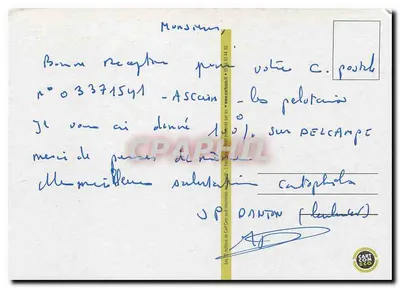 Monsieur,
Bonne reception pour votre c. postale
n° 03371541 - ASCAIN - les pelotaris
Je vous ai donné 100% SUR DELCAMPE
merci de penser de même
Meilleures salutations cartophiles
JP DANTON
CPAPHIL
CART COM